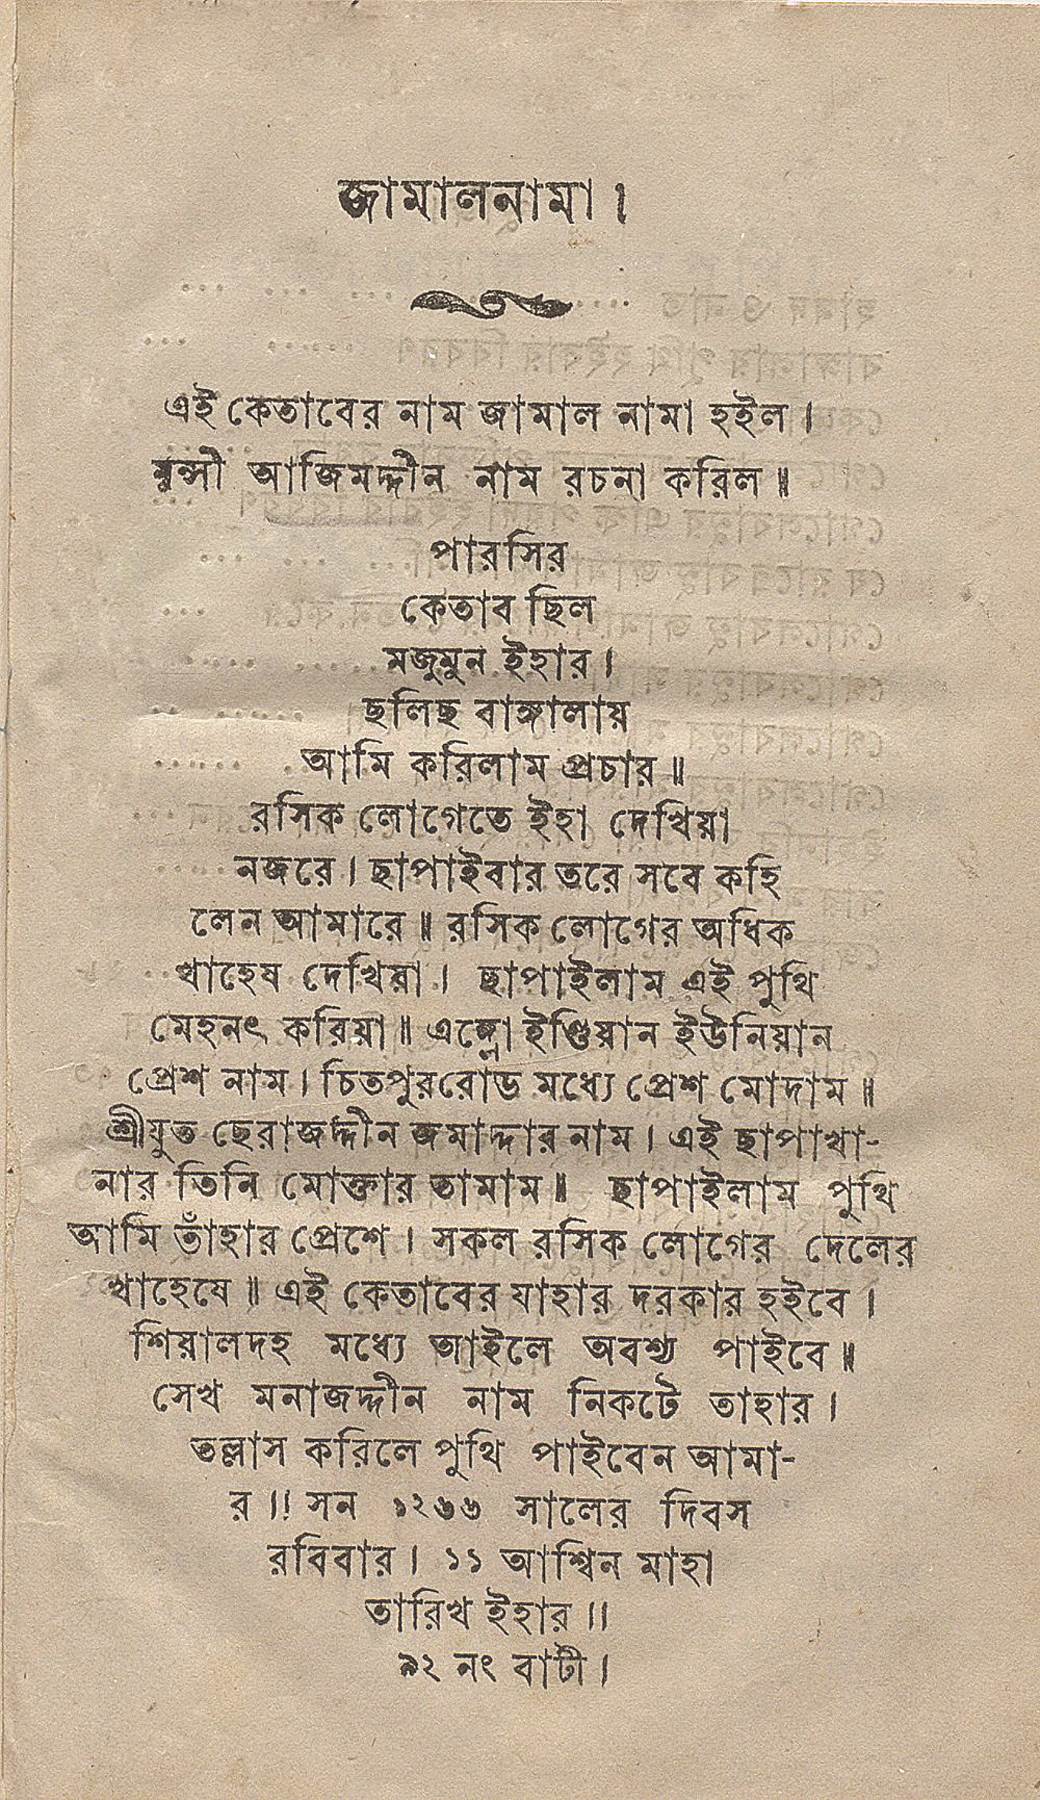 জামালনামা।
এই কেতাবের নাম জামাল নামা হইল।
মুন্সী আজিমদ্দীন নাম রচনা করিল॥
পারসির
কেতাব ছিল
মজুমুন ইহার।
ছলিছ বাঙ্গালায়
আমি করিলাম প্রচার॥
রসিক লোগেতে ইহা দেখিয়া
নজরে। ছাপাইবার তরে সবে কহি
লেন আমারে॥ রসিক লোগের অধিক
খাহেষ দেখিয়া। ছাপাইলাম এই পুথি
মেহনৎ করিয়া॥ এঙ্গ্লো ইণ্ডিয়ান ইউনিয়ান
প্রেশ নাম। চিতপুররোড মধ্যে প্রেশ মোদাম॥
শ্রীযুত ছেরাজদ্দীন জমাদ্দার নাম। এই ছাপাখা-
নার তিনি মোক্তার তামাম॥ ছাপাইলাম পুথি
আমি তাঁহার প্রেশে। সকল রসিক লোগের দেলের
খাহেষে॥ এই কেতাবের যাহার দরকার হইবে।
শিয়ালদহ মধ্যে আইলে অবশ্য পাইবে॥
সেখ মনাজদ্দীন নাম নিকটে তাহার।
তল্লাস করিলে পুথি পাইবেন আমা-
র॥ সন ১২৬৬ সালের দিবস
রবিবার। ১১ আশ্বিন মাহা
তারিখ ইহার॥
৯২ নং বাটী।